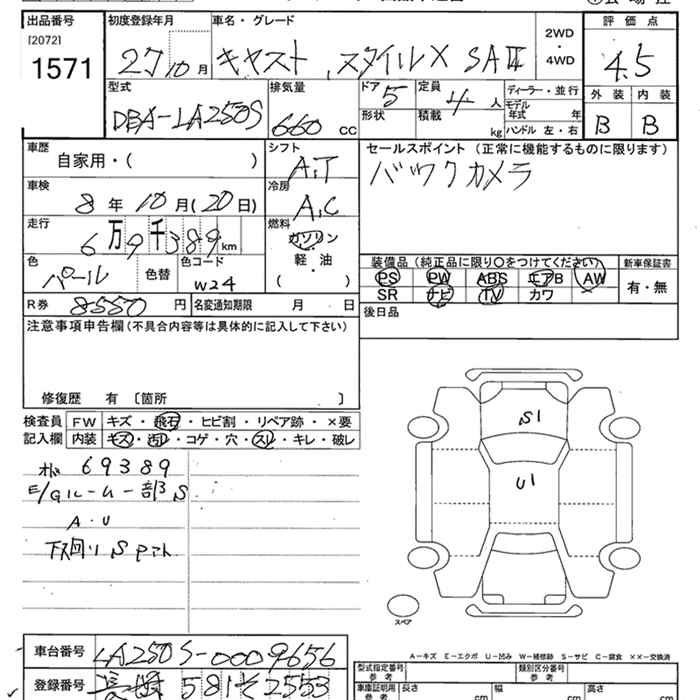 出品番号 初度登録年月 車名・グレード 評価点
[2072]
1571 27 10月 キャスト スタイルX SAⅡ 2WD・4WD 4.5
型式 DBA-LA250S 排気量 660 CC ドア 5 定員 4人 ディーラー・並行 外装 B 内装 B
形状 積載 kg モデル年式 年 ハンドル 左・右
車歴 自家用・( ) シフト A.T セールスポイント (正常に機能するものに限ります)
バックカメラ
車検 8年10月(20日) 冷房 A.C
走行 6万9千389km 燃料 ガソリン
軽・油
( )
色 パール 色替 色コード W24
装備品 (純正品に限り○をつけてください) 新車保証書
PS PW ABS エアB AW 有・無
SR ナビ TV カワ
R券 8550円 名変通知期限 月 日 後日品
注意事項申告欄 (不具合内容等は具体的に記入して下さい)
修復歴 有 〔箇所 〕
検査員 FW キズ・飛石・ヒビ割・リペア跡・×要
記入欄 内装 キズ・汚れ・コゲ・穴・スレ・キレ・破レ
69389
E/Gルーム一部S
A・U
下回りS
S1
U1
スペア
A-キズ E-エクボ U-凹み W-補修跡 S-サビ C-腐食 ××-交換済
車台番号 LA250S-0009656
型式指定番号 参考 類別区分番号 参考
登録番号 長崎 581 そ 2553
車庫証明用 参考 長さ cm 幅 cm 高さ cm